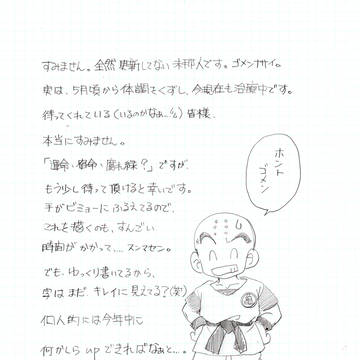 すみません。全然更新してない未邪人です。ゴメンナサイ。
実は、5月頃から体調をくずし、今現在も治療中です。
待ってくれている(いるのかなぁ…)皆様、
本当にすみません。
「運命・宿命・腐れ縁?」ですが、
もう少し待って頂けると幸いです。
手がビミョーにふるえてるので、
これを描くのも、すんごい
時間がかかって…。スンマセン。
でも、ゆっくり書いてるから、
字はまだ、キレイに見えてる?(笑)
個人的には今年中に
何かしら upできればなぁと…。
ホント
ゴメン